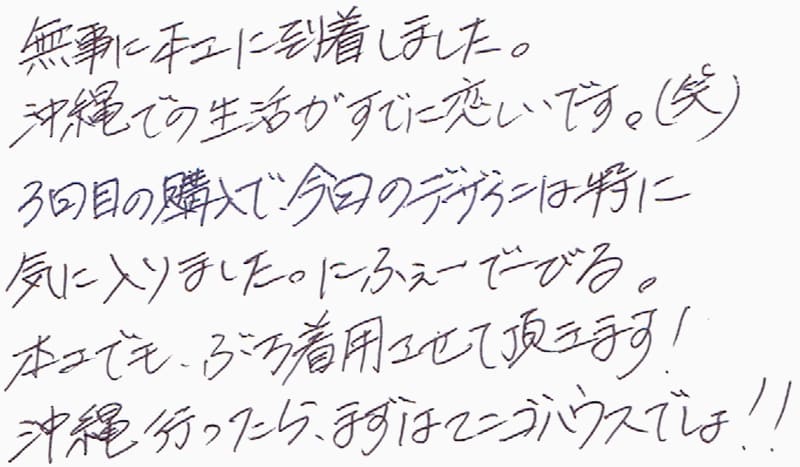 無事に本土に到着しました。
沖縄での生活がすでに恋しいです。(笑)
3回目の購入で、今回のデザインは特に
気に入りました。にふぇーでーびる。
本土でも、ぶち着用させて頂きます!
沖縄行ったら、まずはマンゴハウスでしょ!!